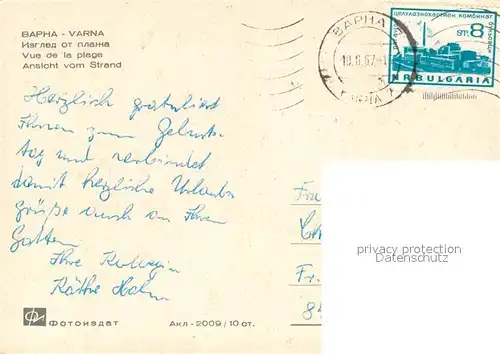 ВАРНА - VARNA
Изглед от плажа
Vue de la plage
Ansicht vom Strand
ВАРНА
10.6.67
целулознохартиен комбинат
ST. 8
NR BULGARIA
Herzlich gratuliert
Ihnen zum Geburts-
tag und verbindet
damit herzliche Urlaubs
grüße auch an Ihren
Gatten
Ihre Kollegin
Käthe Hahn
Fr
Fr.
84
privacy protection
Datenschutz
Фотоиздат
Акл - 2009 / 10 ст.